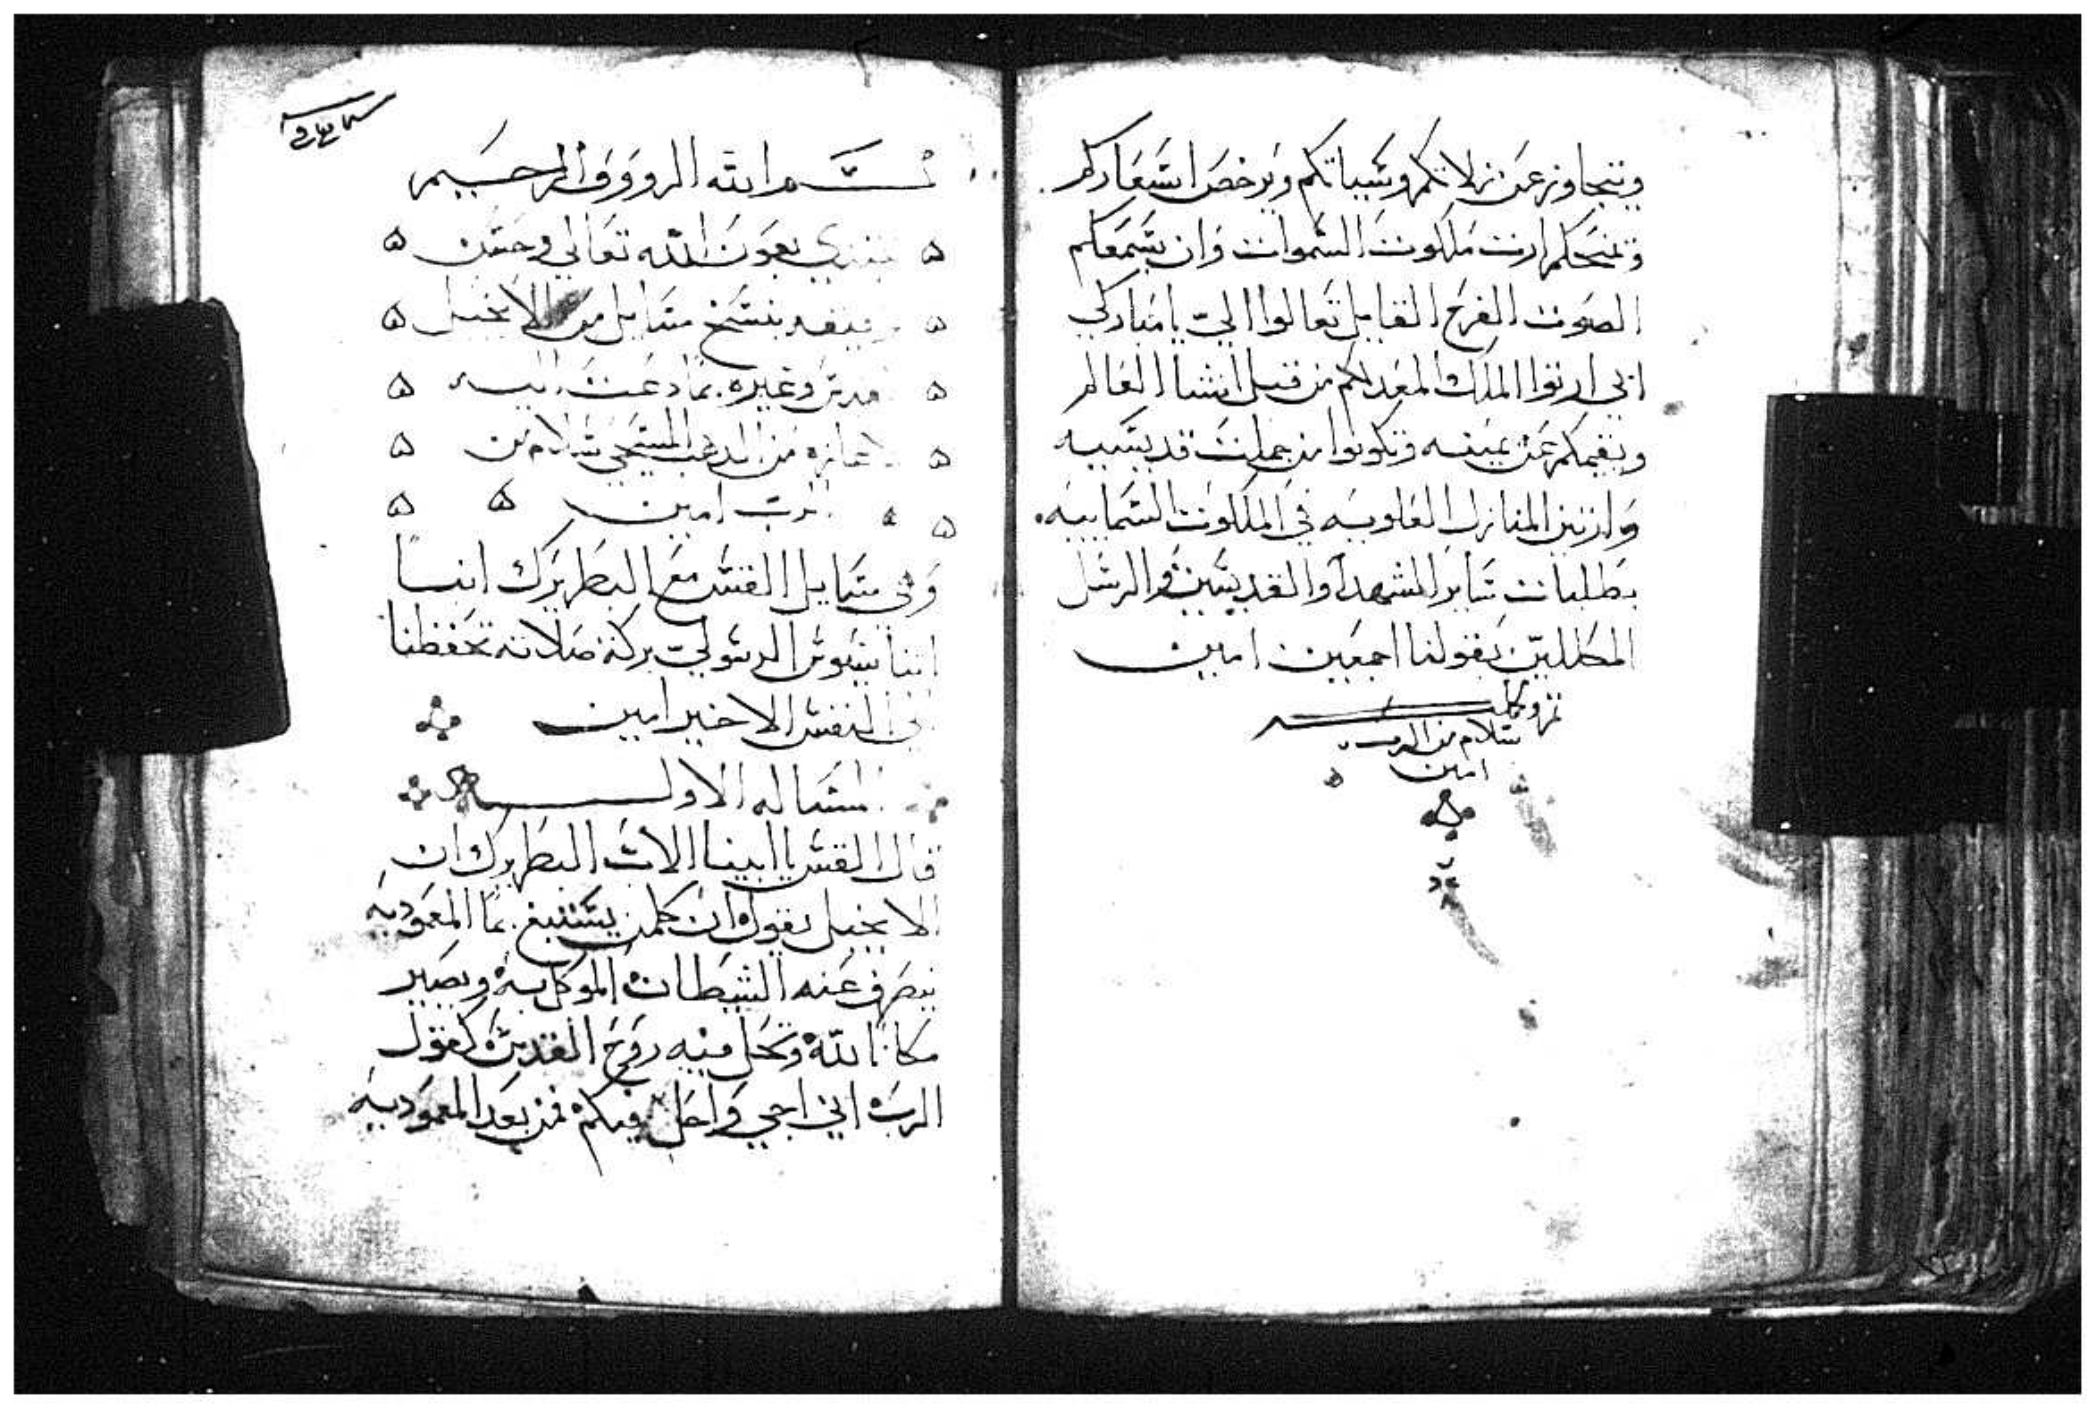 ويتجاوز عن زلاتكم وسياتكم ويرخص اسعاركم
ويمنحكم ارت ملكوت السموات وان يسمعكم
الصوت الفرح القايل تعالوا اليّ يا مباركي
ابي ارتوا الملك المعد لكم من قبل انشا العالم
ويقيمكم عن يمينه وتكونوا من جملت قديسيه
وارتين المنازل العلويه في الملكوت السماييه
بطلبات ساير الشهدا والقديسين والرسل
المكللين بقولنا اجمعين امين
تم وكمل
سلام من الرب
امين
بسم الله الرووف الرحيم
نبتدي بعون الله تعالى وحسن
توفيقه بنسخ مسايل من الانجيل
المقدس وغيره مما دعت اليه
من المدعب المسيحي سلام من
الرب امين
وهي مسايل القس مع البطريرك انبا
اتناسيوس الرسولي بركة صلاته تحفظنا
الى النفس الاخير امين
المساله الاوله
قال القس يا ابينا الاب البطريرك ان
الانجيل يقول ان كلمن يستبغ بما المعموديه
ينصرف عنه الشيطان الموكل به ويصير
مكانا لله وتحل فيه روح القدس كقول
الرب اني اجي واحل فيكم فمن بعد المعموديه